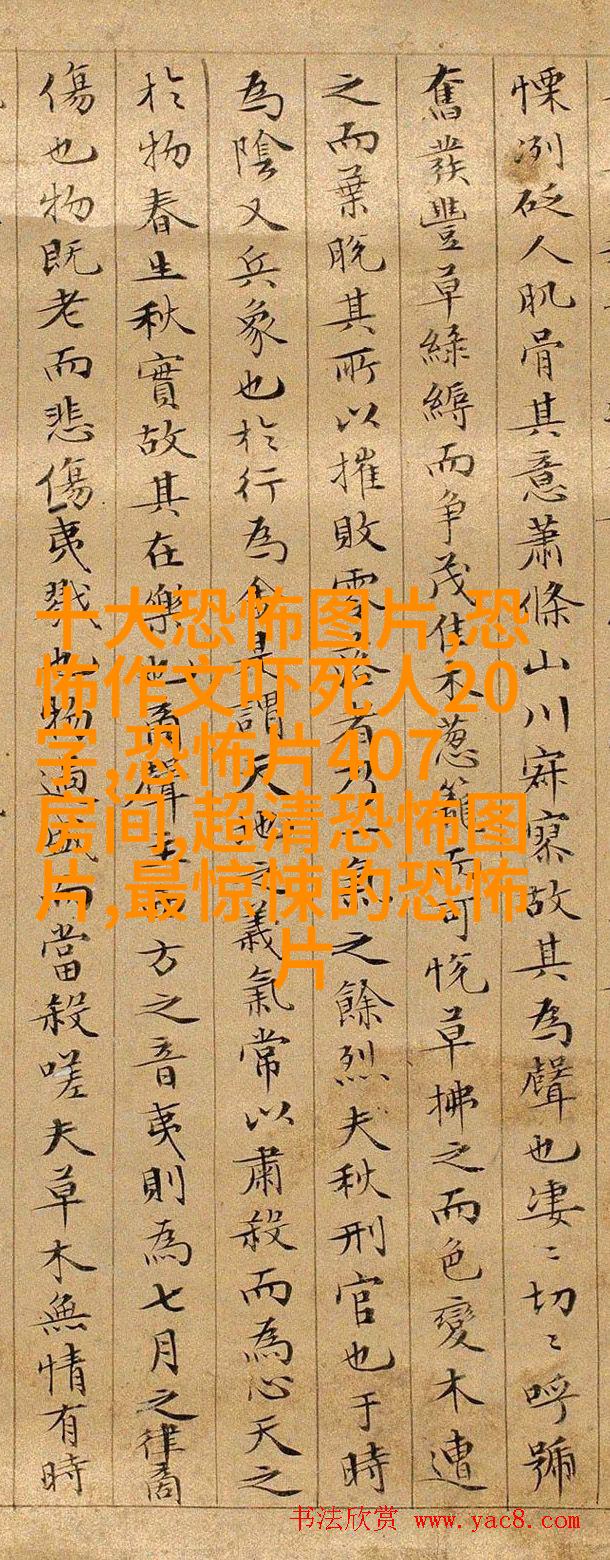 慄冽砭人肌骨其意蕭條山川寂寥故其為聲也凄〻切〻呼號
奮發豐草綠縟而争茂佳木蔥籠而可悅草拂之而色變木遭
之而葉脫其所以摧敗零落者乃一氣之餘烈夫秋刑官也于時
為陰又兵象也於行為金是謂天地之義氣常以肅殺而為心天之
於物春生秋實故其在樂也商聲主西方之音夷則為七月之律商
傷也物既老而悲傷夷戮也物過盛而當殺嗟夫草木無情有時
十大恐怖图片,恐
怖作文吓死人20
字,恐怖片407
房间,超清恐怖图
片,最惊悚的恐怖
片
书法欣赏 www.yac8.com